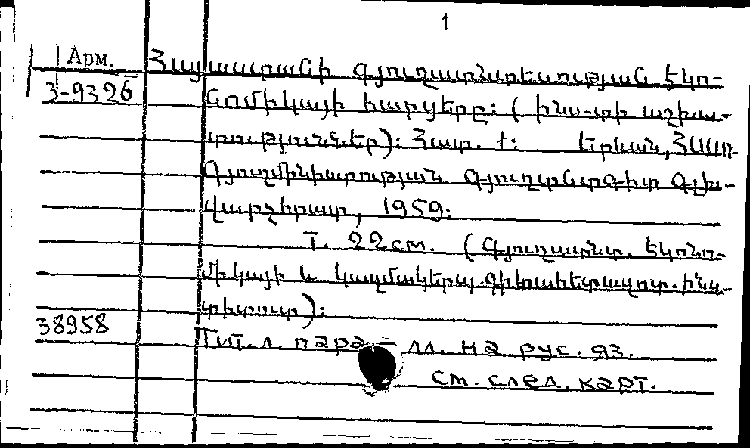 1
Арм. Հայաստանի գյուղատնտեսության էկո-
3-9326 նոմիկայի հարցերը: (ինս-տի աշխա-
տություններ): Հատ. 1: Երևան, ՀՍՍՌ
Գյուղմինիստրության Գյուղտնտգիտ Գլխ-
վարչերատ, 1959:
т. 22 см. (Գյուղատնտ. էկոնո-
միկայի և կազմակերպ. գիտահետազոտ. ինս-
տիտուտ):
38958
Тит. л. парал. на рус. яз.
см. след. карт.